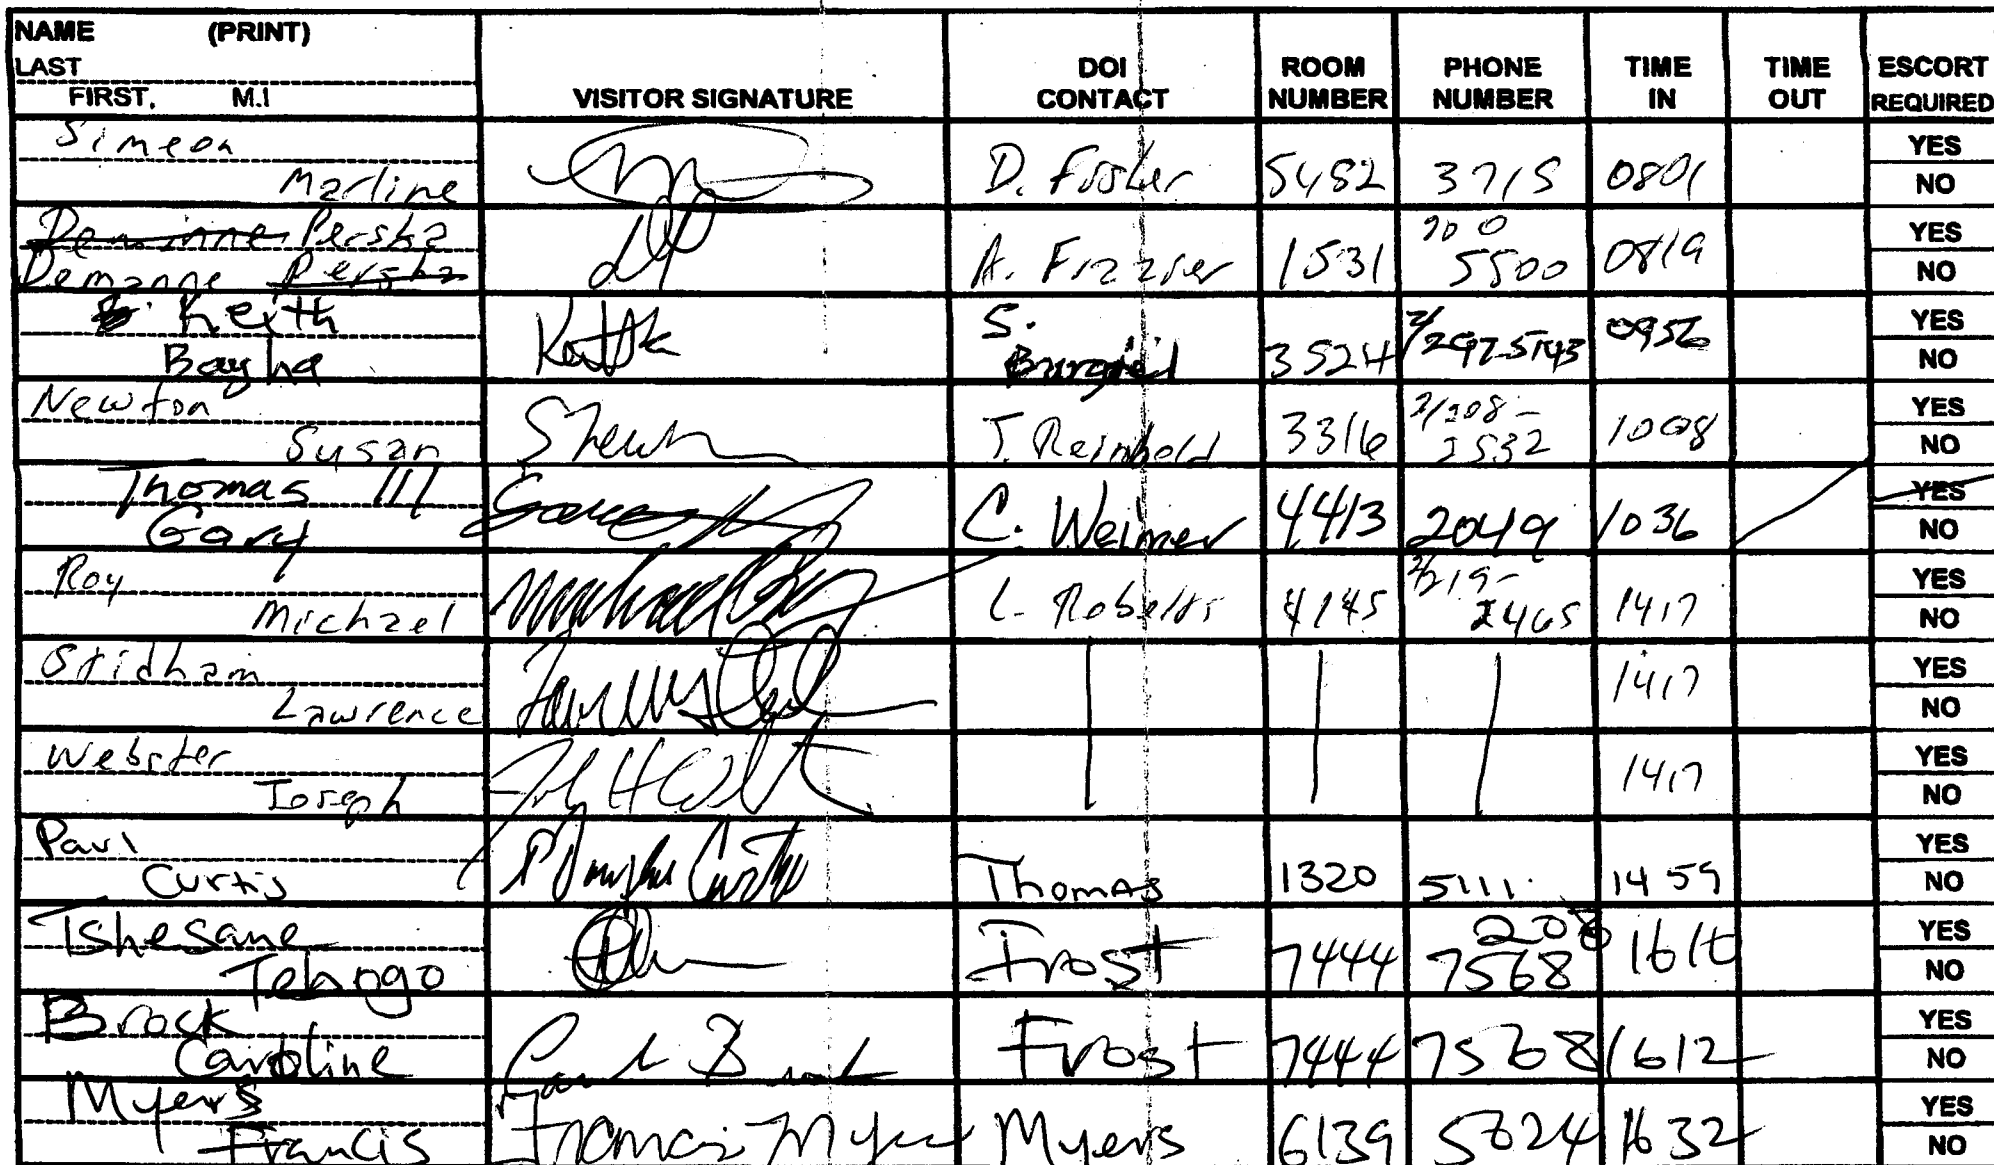 NAME (PRINT)
LAST
FIRST, M.I
VISITOR SIGNATURE
DOI CONTACT
ROOM NUMBER
PHONE NUMBER
TIME IN
TIME OUT
ESCORT REQUIRED
Simeon
Marline D. Foster 5482 3715 0801 YES NO
Persha
Demanne A. Frazier 1531 5500 0819 YES NO
Keith
Baugha S. 3524 0956 YES NO
Newton
Susan T. Reinbold 3316 1008 YES NO
Thomas III
Gary C. Weimer 4413 2049 1036 YES NO
Roy
Michael L. Roberts 4145 2/219-2465 1417 YES NO
Stidham
Lawrence 1417 YES NO
Webster
Joseph 1417 YES NO
Paul
Curtis Thomas 1320 5111 1459 YES NO
Tshesane
Frost 7444 208 7568 YES NO
Brock
Caroline Frost 7444 7568 1612 YES NO
Myers
Francis Francis Myers Myers 6139 5624 1632 YES NO